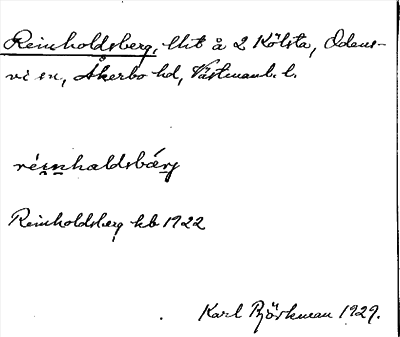 Reinholdsberg, lht å 2 Kölsta, Odens-
vi sn, Åkerbo hd, Västmanl. l.
réi̯nhaldsbárj
Reinholdsberg hb 1922
Karl Björkman 1929.